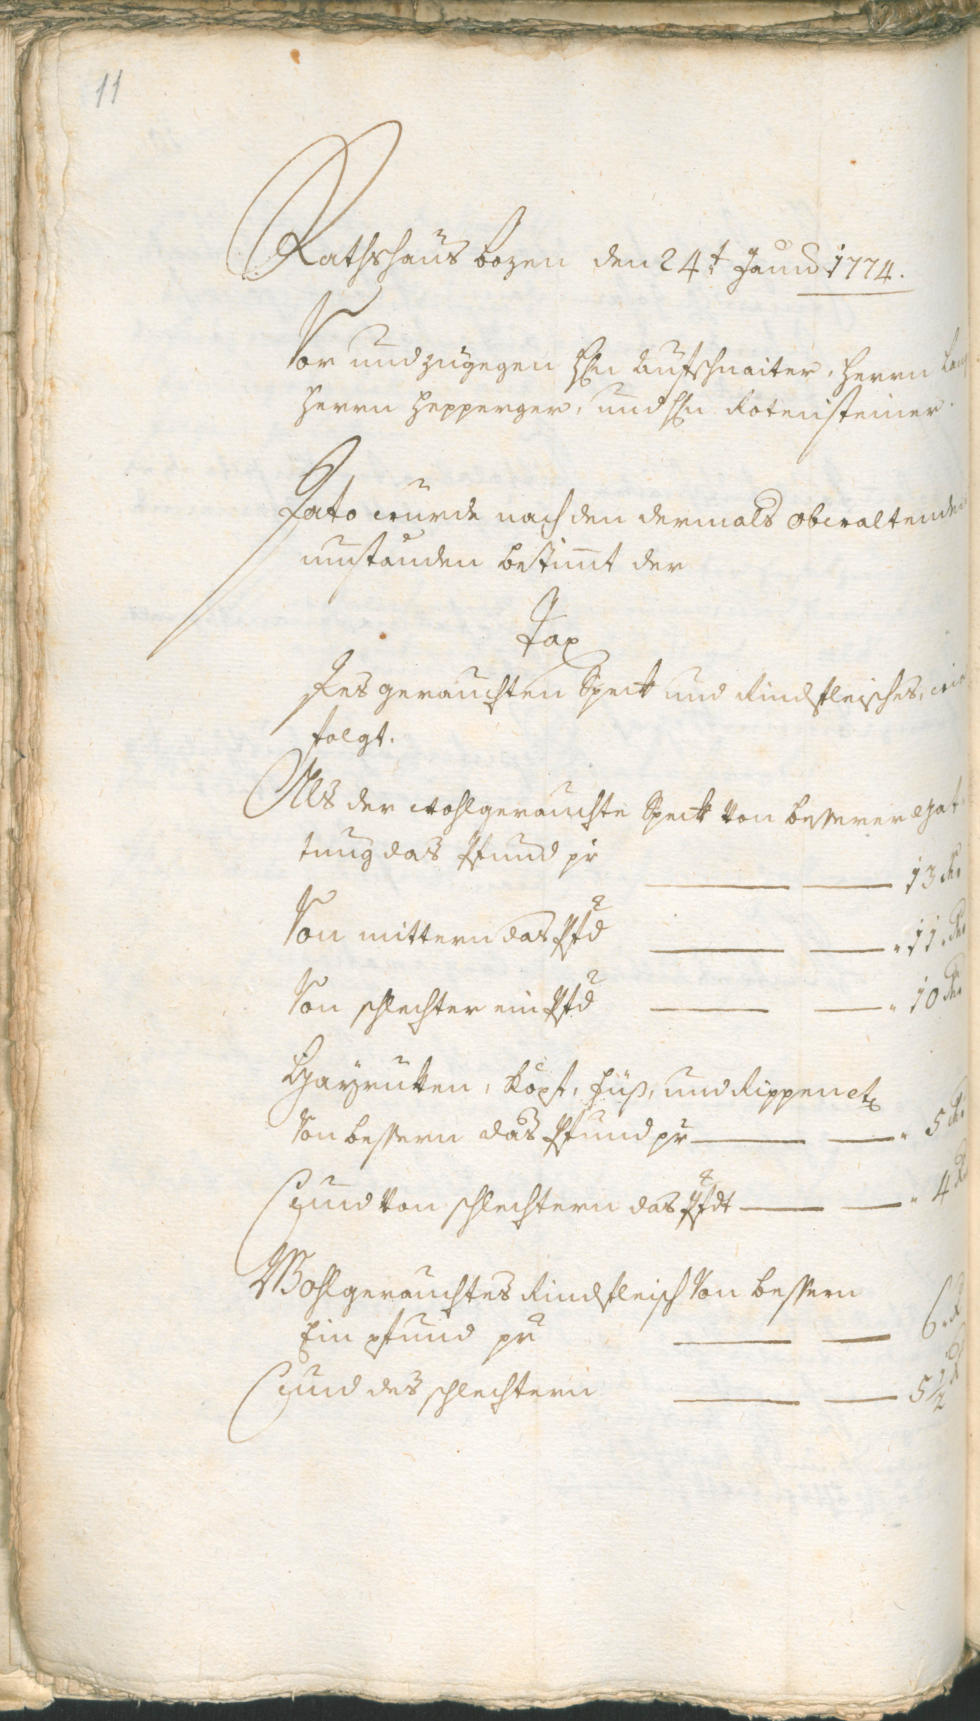 11
Rathshaus Bozen den 24t 1774.
Vor und zugegen Hhn Aufschnaiter, Herrn
Herrn Hepperger, und Hn Rotensteiner.
Dato wurde nach den dermals obwaltenden
umständen bestimt der
Tax
Des gerauchten Speck und Rindfleisches, wie
folgt.
Als der wohlgerauchte Speck von besserer gat
tung das Pfund pr 13 kr
Von mittern das Pfd 11 kr
Von schlechter ein Pfd 10 kr
Köpf, Füß, und Rippen etc
Von bessern das Pfund pr 5 kr
und von schlechtern das Pfdt 4 kr
Wohlgerauchtes Rindfleisch von bessern
Ein pfund pr 6 kr
und des schlechtern 5 1/2 kr